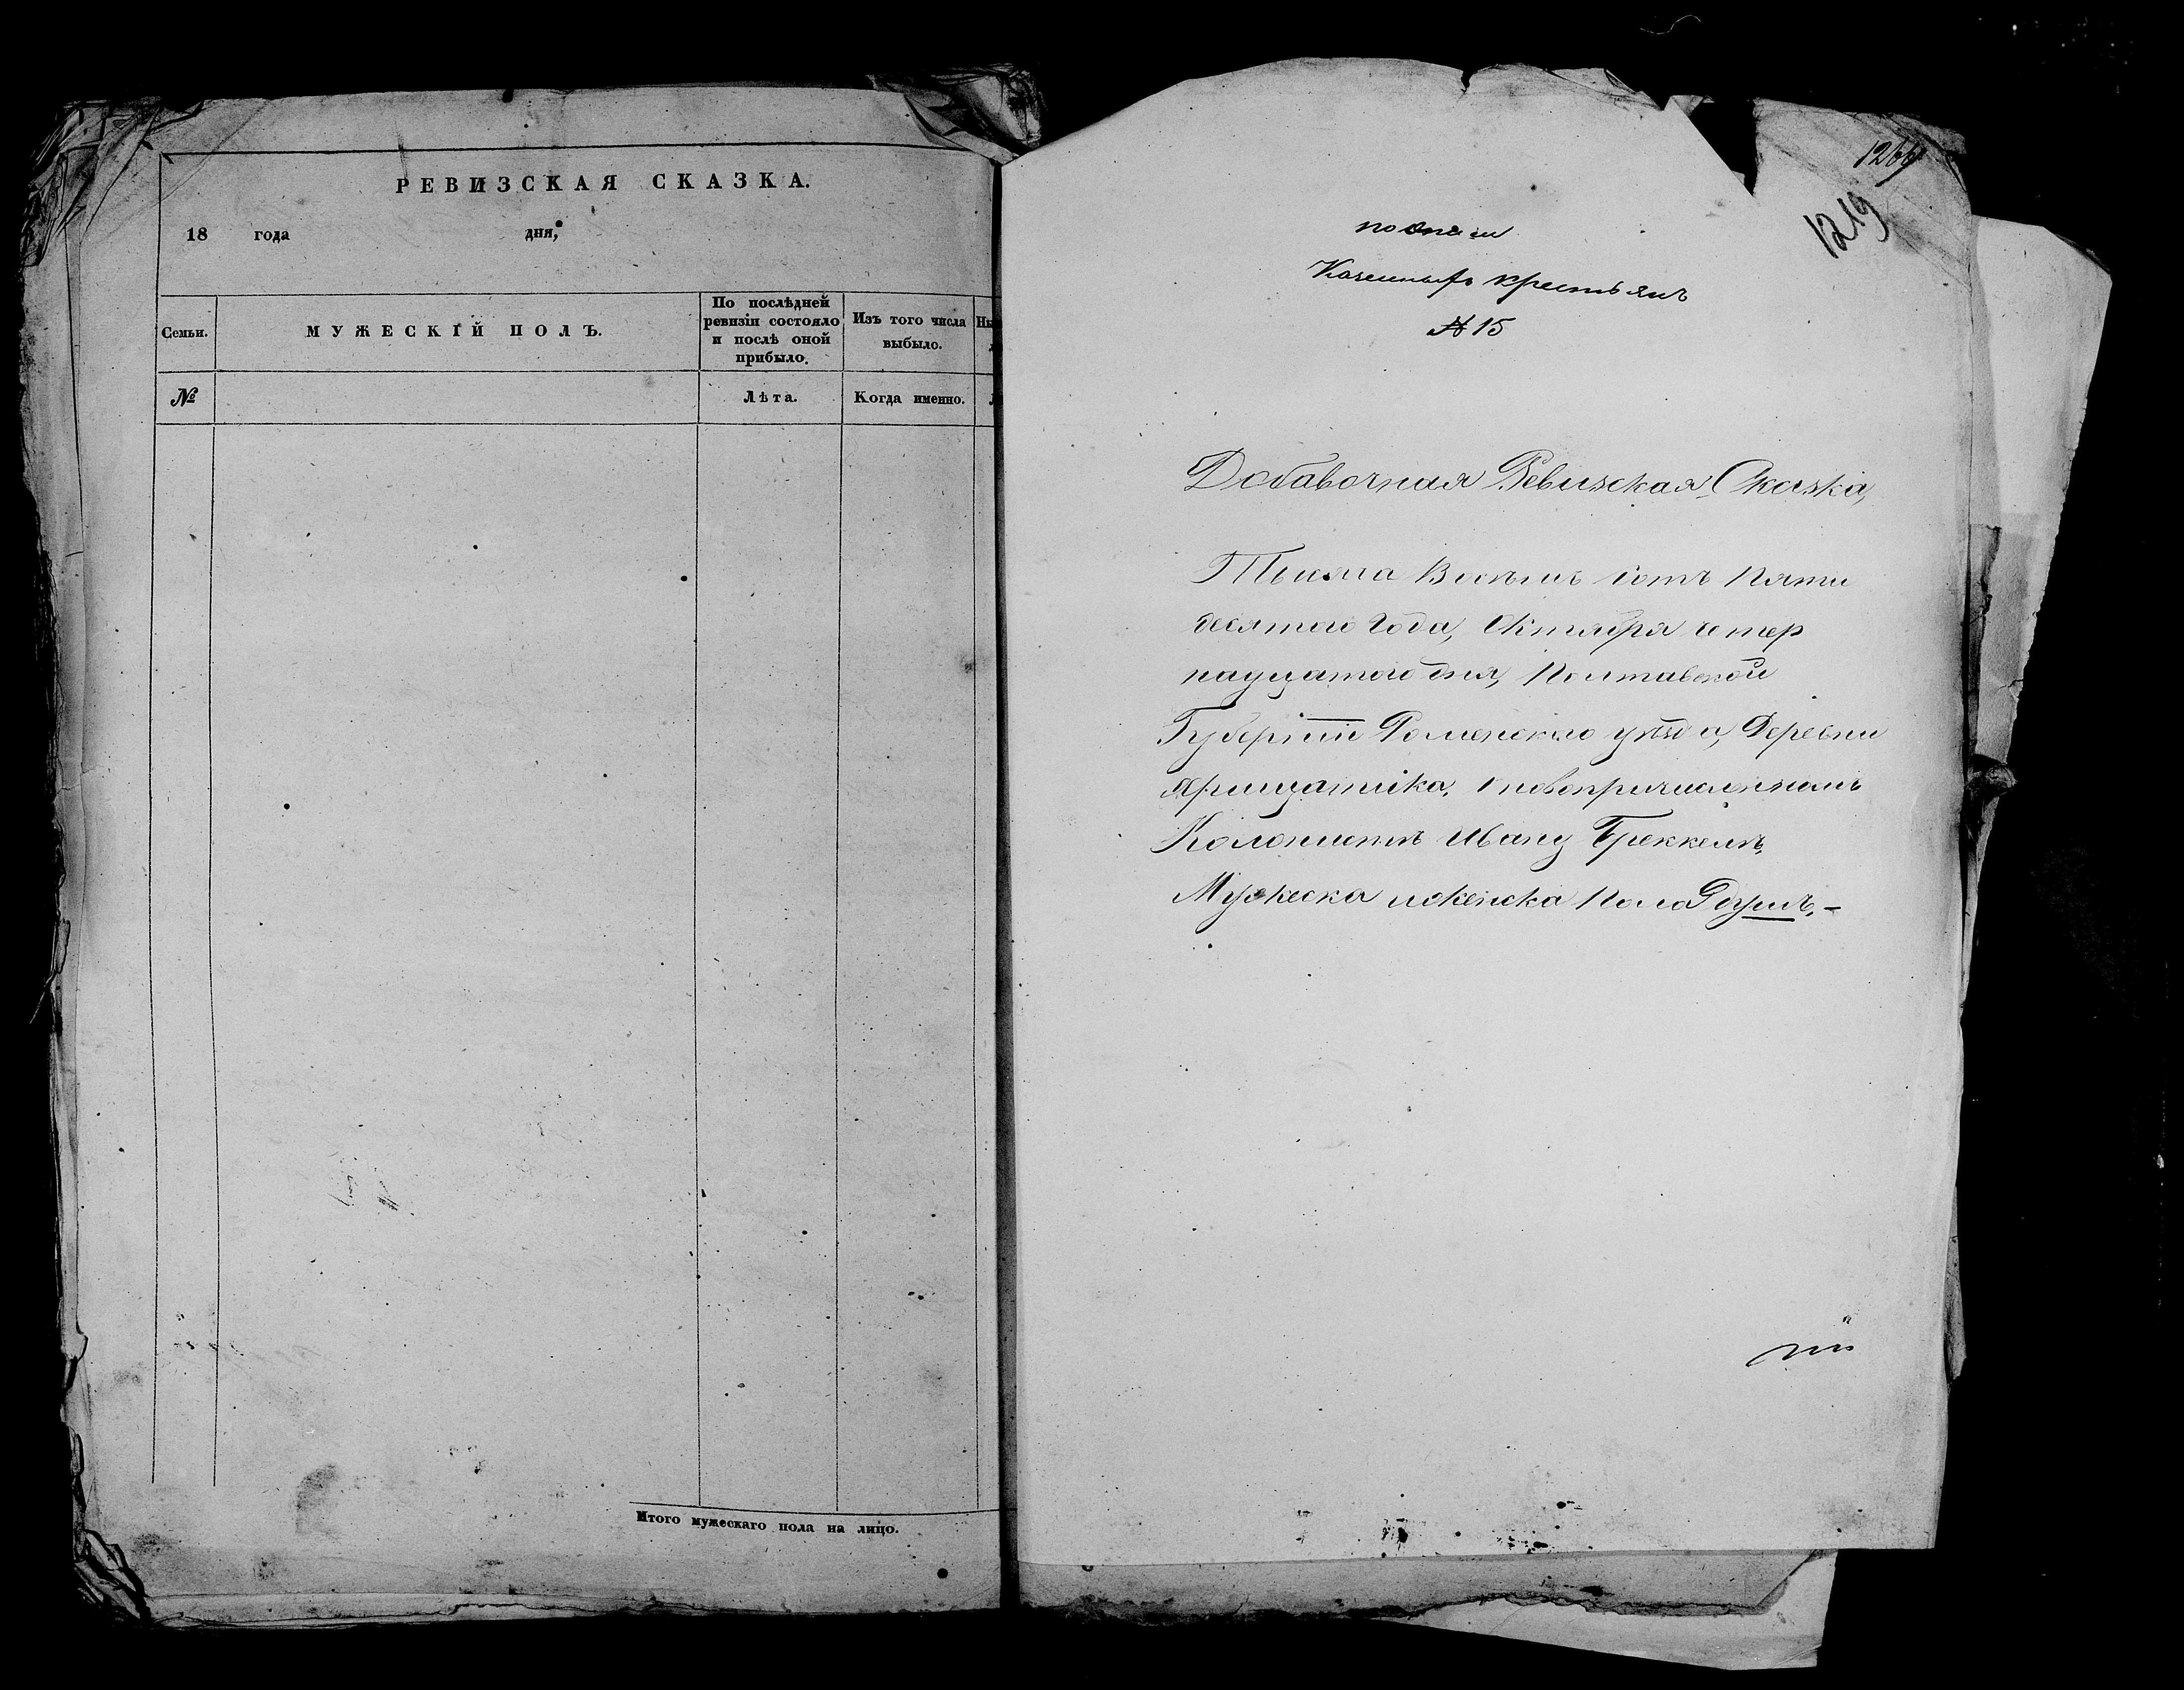 РЕВИЗСКАЯ СКАЗКА.
18 года дня,
Семьи.
МУЖЕСКІЙ ПОЛЪ.
По послѣдней
ревизіи состояло
и послѣ оной
прибыло.
Изъ того числа
выбыло.
№
Лѣта.
Когда именно.
Итого мужескаго пола на лицо.
1266
1219
Казенныхъ крестьянъ
№ 15
Добавочная Ревизская Сказка,
Тысяча Восемь сотъ Пяти
десятого Года, Октября четер
надцатого дня, Полтавской
Губерніи Роменского уѣзда, Деревни
новопричисленномъ
Колонистѣ Ивану Греккелѣ,
Мужеска и женска Пола Душъ,—